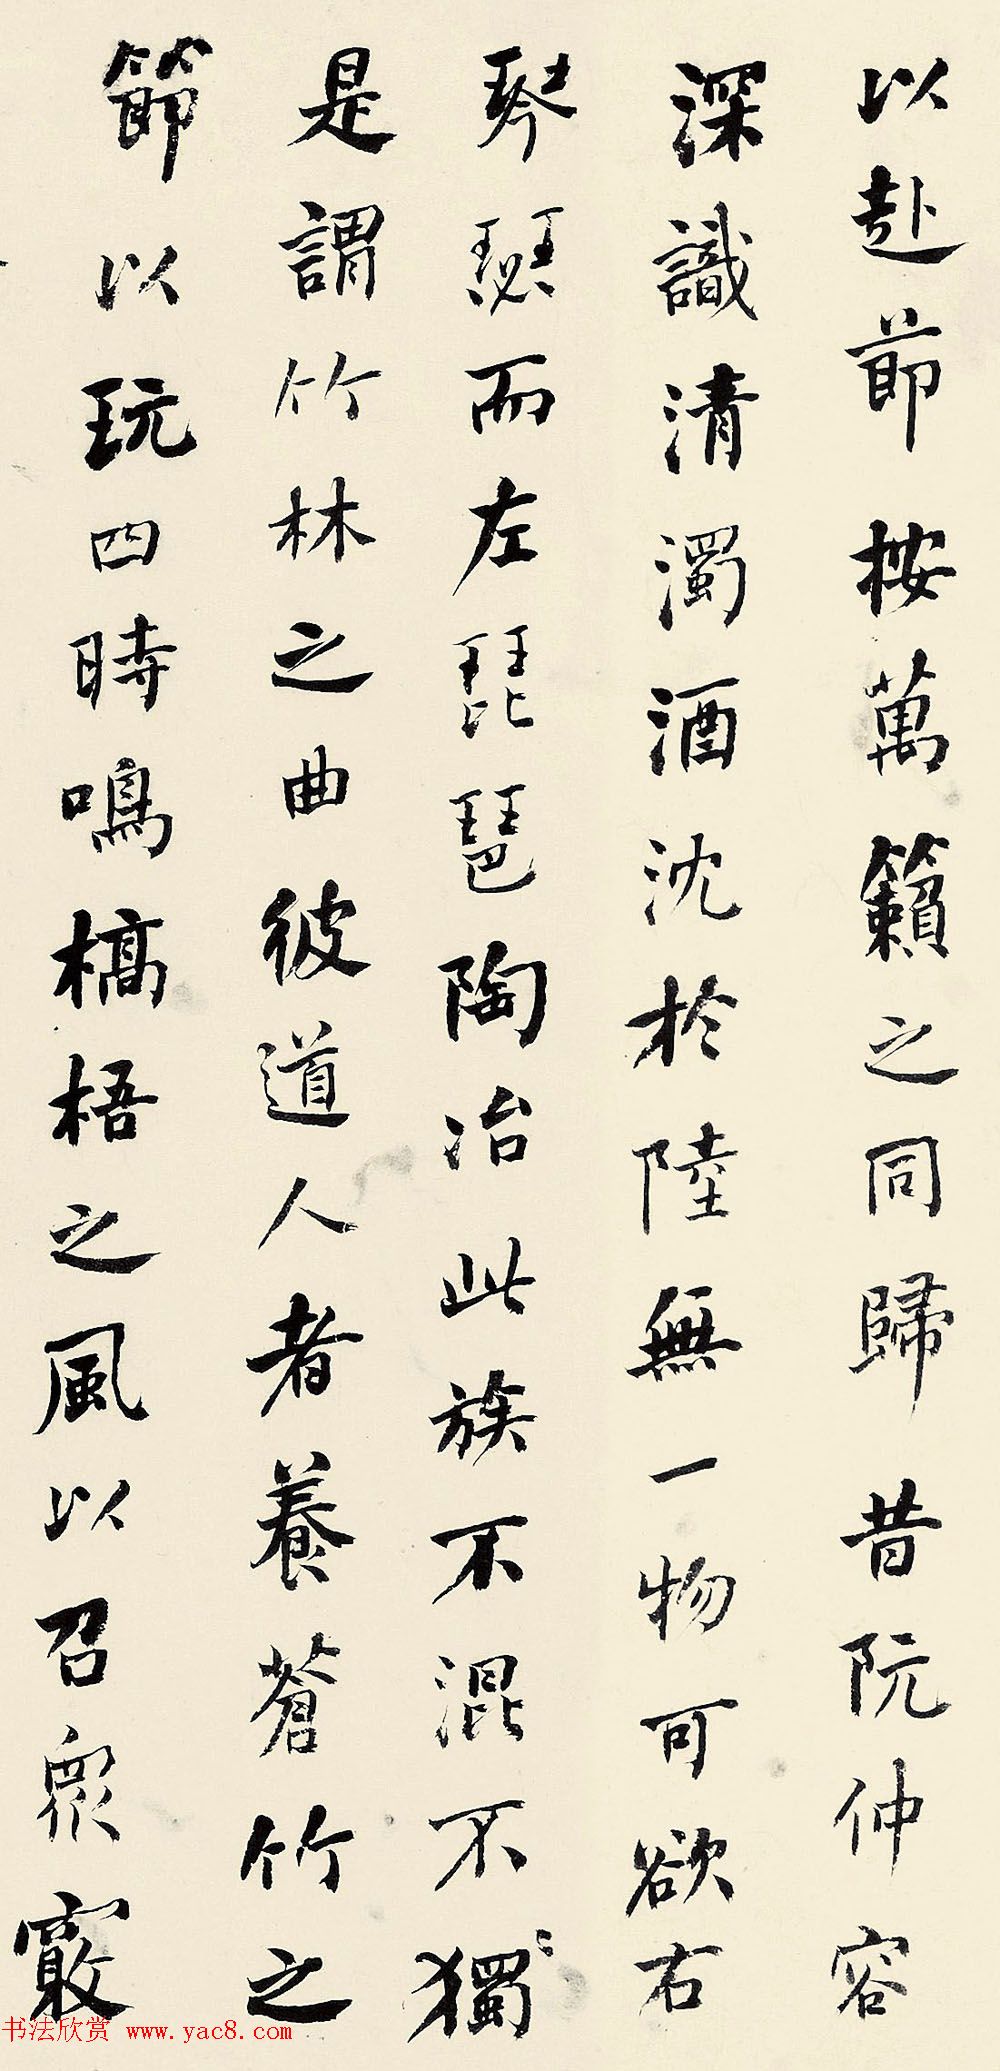 以赴節按萬籟之同歸昔阮仲容
深識清濁酒沈於陸無一物可欲右
琴瑟而左琵琶陶冶此族不混不獨
是謂竹林之曲彼道人者養蒼竹之
節以玩四時鳴槁梧之風以召眾竅
书法欣赏 www.yac8.com